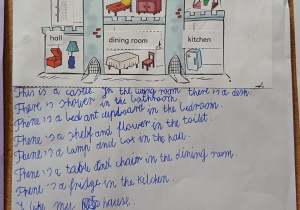 hall
dining room
kitchen
This is a castle. In the living room there is a desk.
There is shower in the bathroom.
There is a bed and cupboard in the bedroom.
There is a shelf and flower in the toilet.
There is a lamp and box in the hall.
There is a table and chair in the dining room.
There is a fridge in the kitchen.
I like my house.